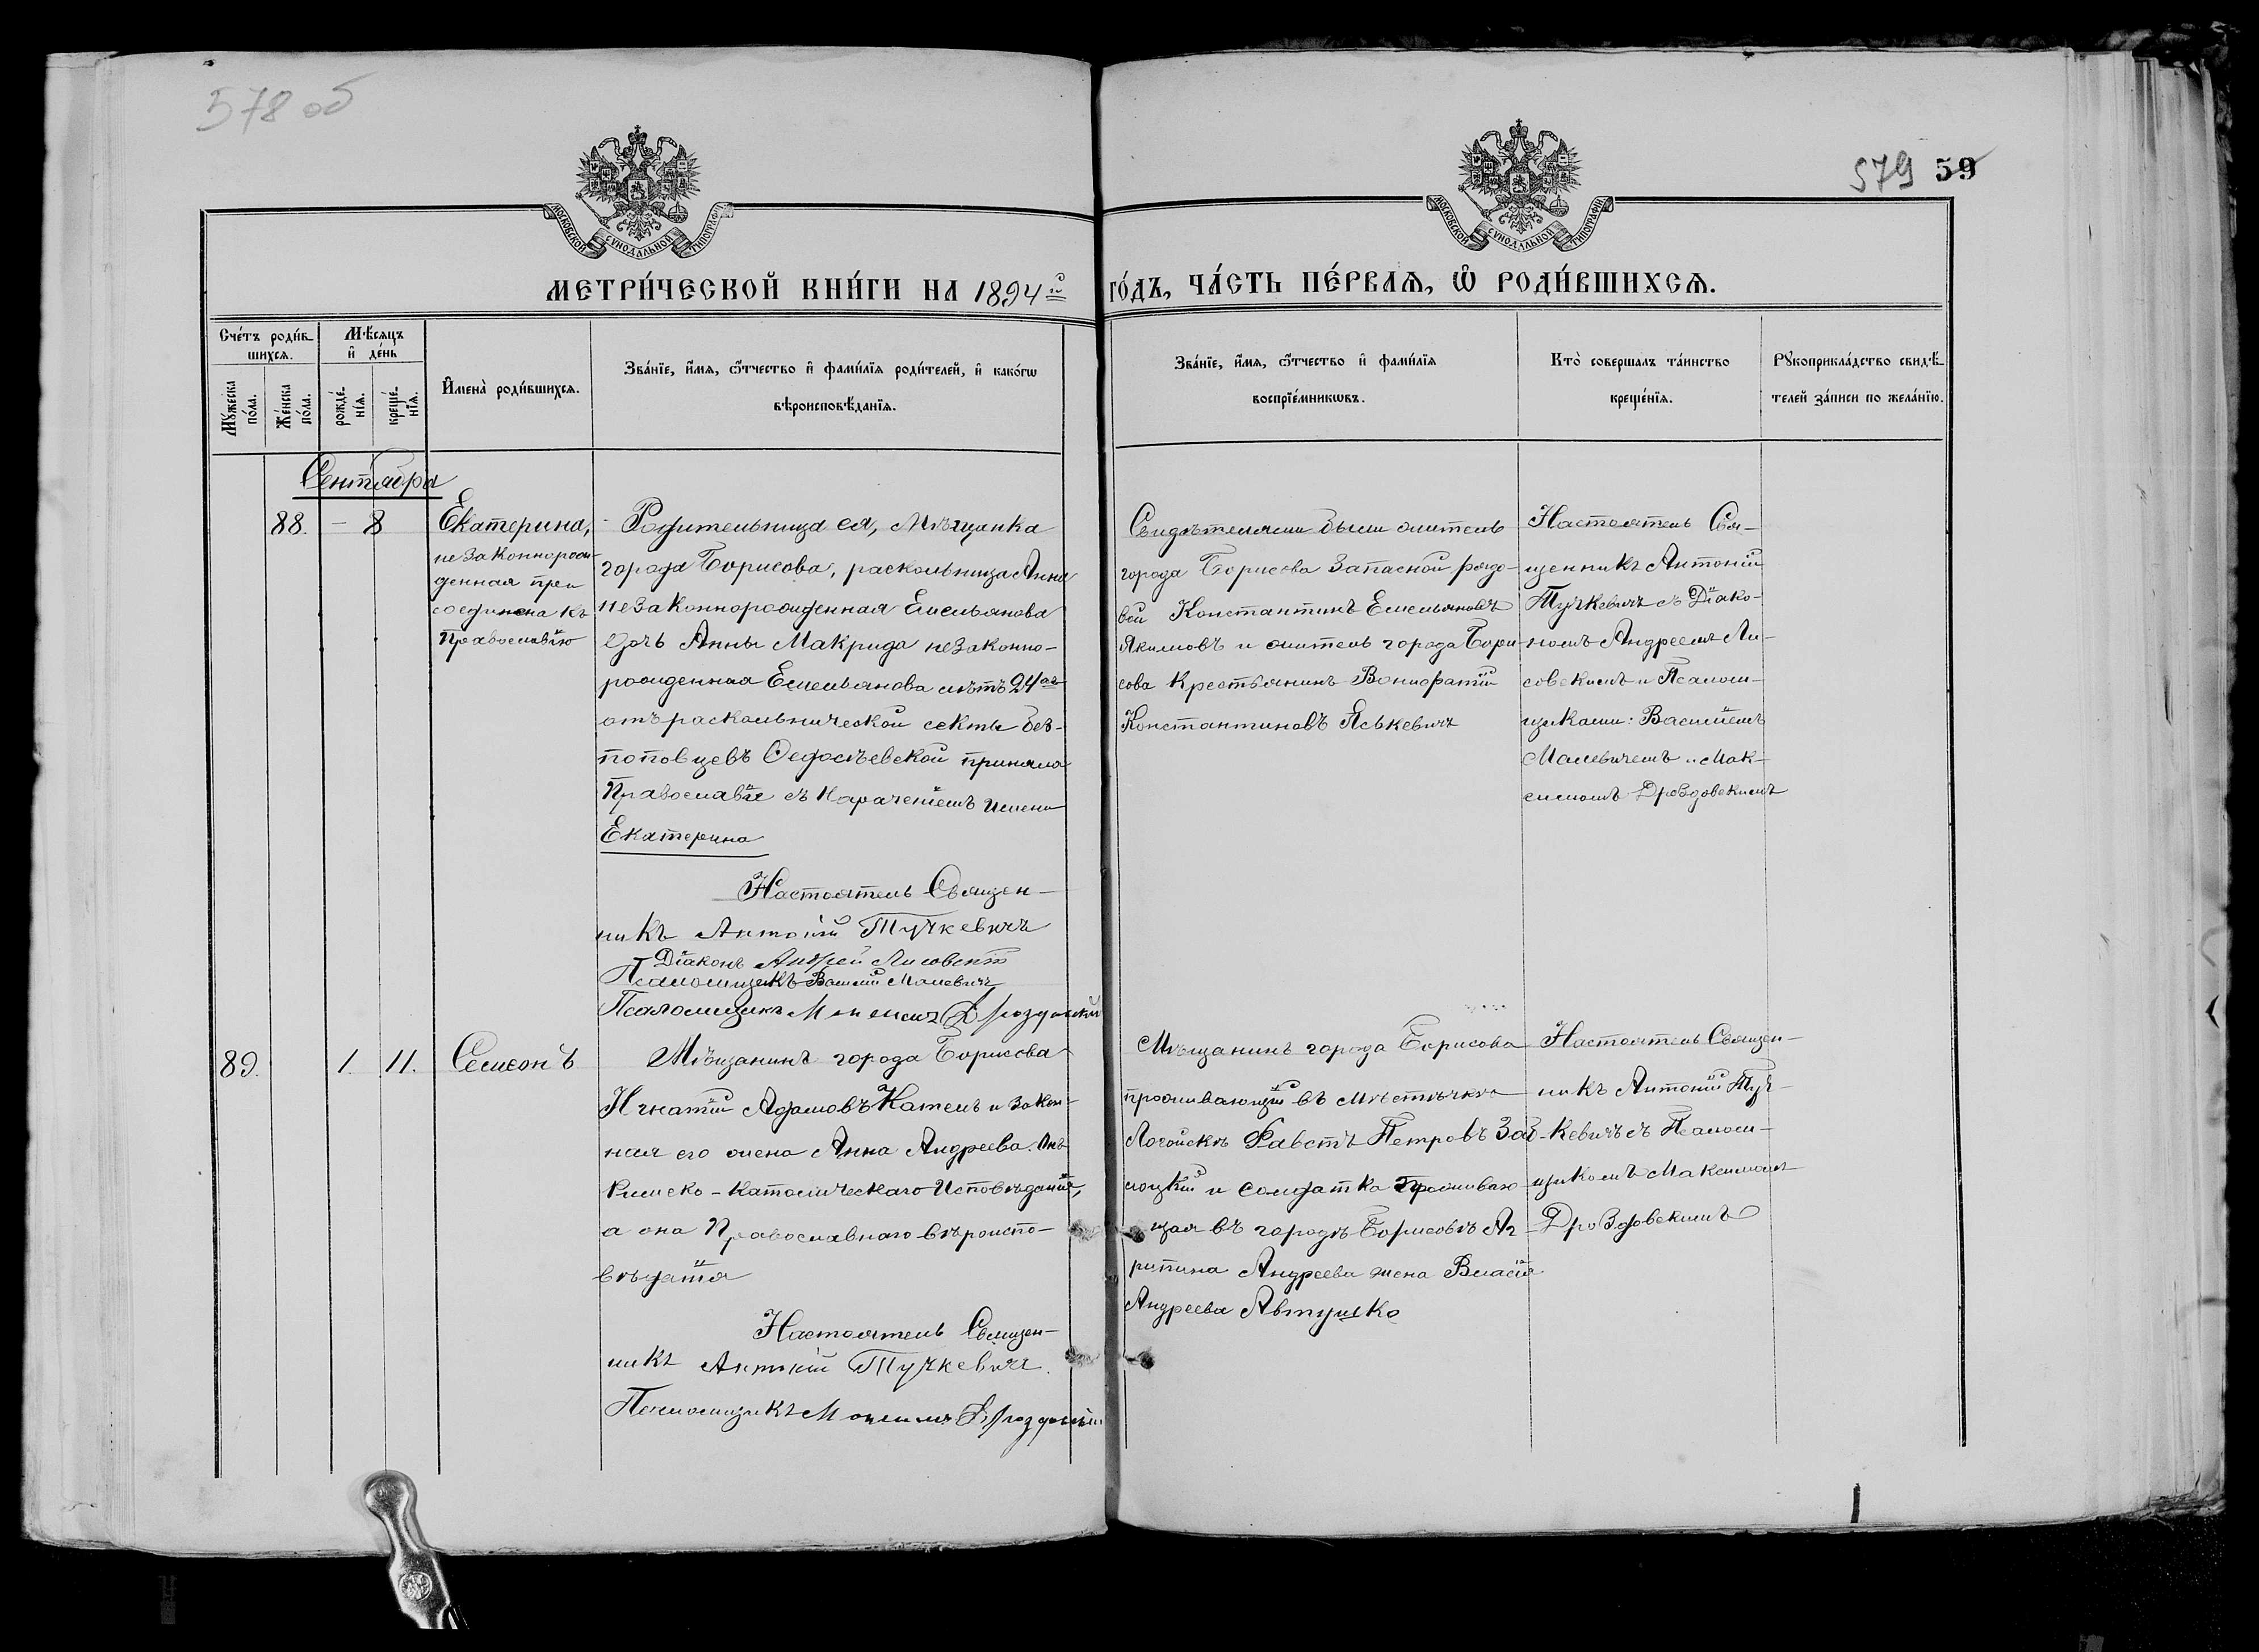 578 об
579 59
МОСКОВСКОЙ СѴНОДАЛЬНОЙ ТИПОГРАФІИ
МОСКОВСКОЙ СѴНОДАЛЬНОЙ ТИПОГРАФІИ
МЕТРИ́ЧЕСКОЙ КНИ́ГИ НА 1894й
ГО́ДЪ, ЧА́СТЬ ПЕ́РВАѦ, Ѽ РОДИ́ВШИХСѦ.
Сче́тъ роди́в-
шихсѧ.
Мѣ́сѧцъ
и҆ де́нь
Мꙋ́жеска
по́ла.
Же́нска
по́ла.
рожде́-
нїѧ.
креще́-
нїѧ.
И҆мена̀ роди́вшихсѧ.
Зва́нїе, и҆́мѧ, ѻ҆́тчество и҆ фами́лїѧ роди́телей, и҆ како́гѡ
вѣроисповѣ́данїѧ.
Зва́нїе, и҆́мѧ, ѻ҆́тчество и҆ фами́лїѧ
воспрїе́мникѡвъ.
Кто̀ совершалъ та́инство
креще́нїѧ.
Рꙋкоприкла́дство свидѣ́-
телей за́писи по жела́нїю.
Сентября
88. – 8
Екатерина,
незаконнорож-
денная при
соединена къ
Православію
Родительница ея, Мѣщанка
города Борисова, раскольница Анна
незаконнорожденная Емельянова
дочь Анны Макрида незаконно-
рожденная Емельянова лѣтъ 24
отъ раскольнической секты без-
поповцевъ Ѳедосѣевской приняла
Православіе съ нареченіемъ имени
Екатерина
Настоятель Священ-
никъ Антоній Тучкевичъ
Діаконъ Андрей Лисовскій
Псаломщикъ Василій Малевичъ
Псаломщикъ Максимъ Дроздовскій
Свидѣтелями были житель
города Борисова Запасной рядо-
вой Константинъ Емельяновъ
Якимовъ и житель города Бори-
сова Крестьянинъ Вонифатій
Константиновъ Яськевичъ
Настоятель Свя-
щенникъ Антоній
Тучкевичъ съ Діако-
номъ Андреемъ Ли-
совскимъ и Псалом-
щиками: Василіемъ
Малевичемъ и Мак-
симомъ Дроздовскимъ
89. 1. 11. Семеонъ
Мѣщанинъ города Борисова
Игнатій Адамовъ Катель и закон-
ная его жена Анна Андреева. Онъ
Римско-католическаго исповѣданія,
а она Православнаго вѣроиспо-
вѣданія
Настоятель Священ-
никъ Антоній Тучкевичъ.
Псаломщикъ Максимъ Дроздовскій
Мѣщанинъ города Борисова
проживающій въ мѣстечкѣ
Логойскѣ Фавстъ Петровъ Заб-
лоцкій и солдатка проживаю-
щая въ городѣ Борисовѣ Аг-
рипина Андреева жена Власія
Андреева Автушко
Настоятель Священ-
никъ Антоній Туч-
кевичъ съ Псалом-
щикомъ Максимомъ
Дроздовскимъ